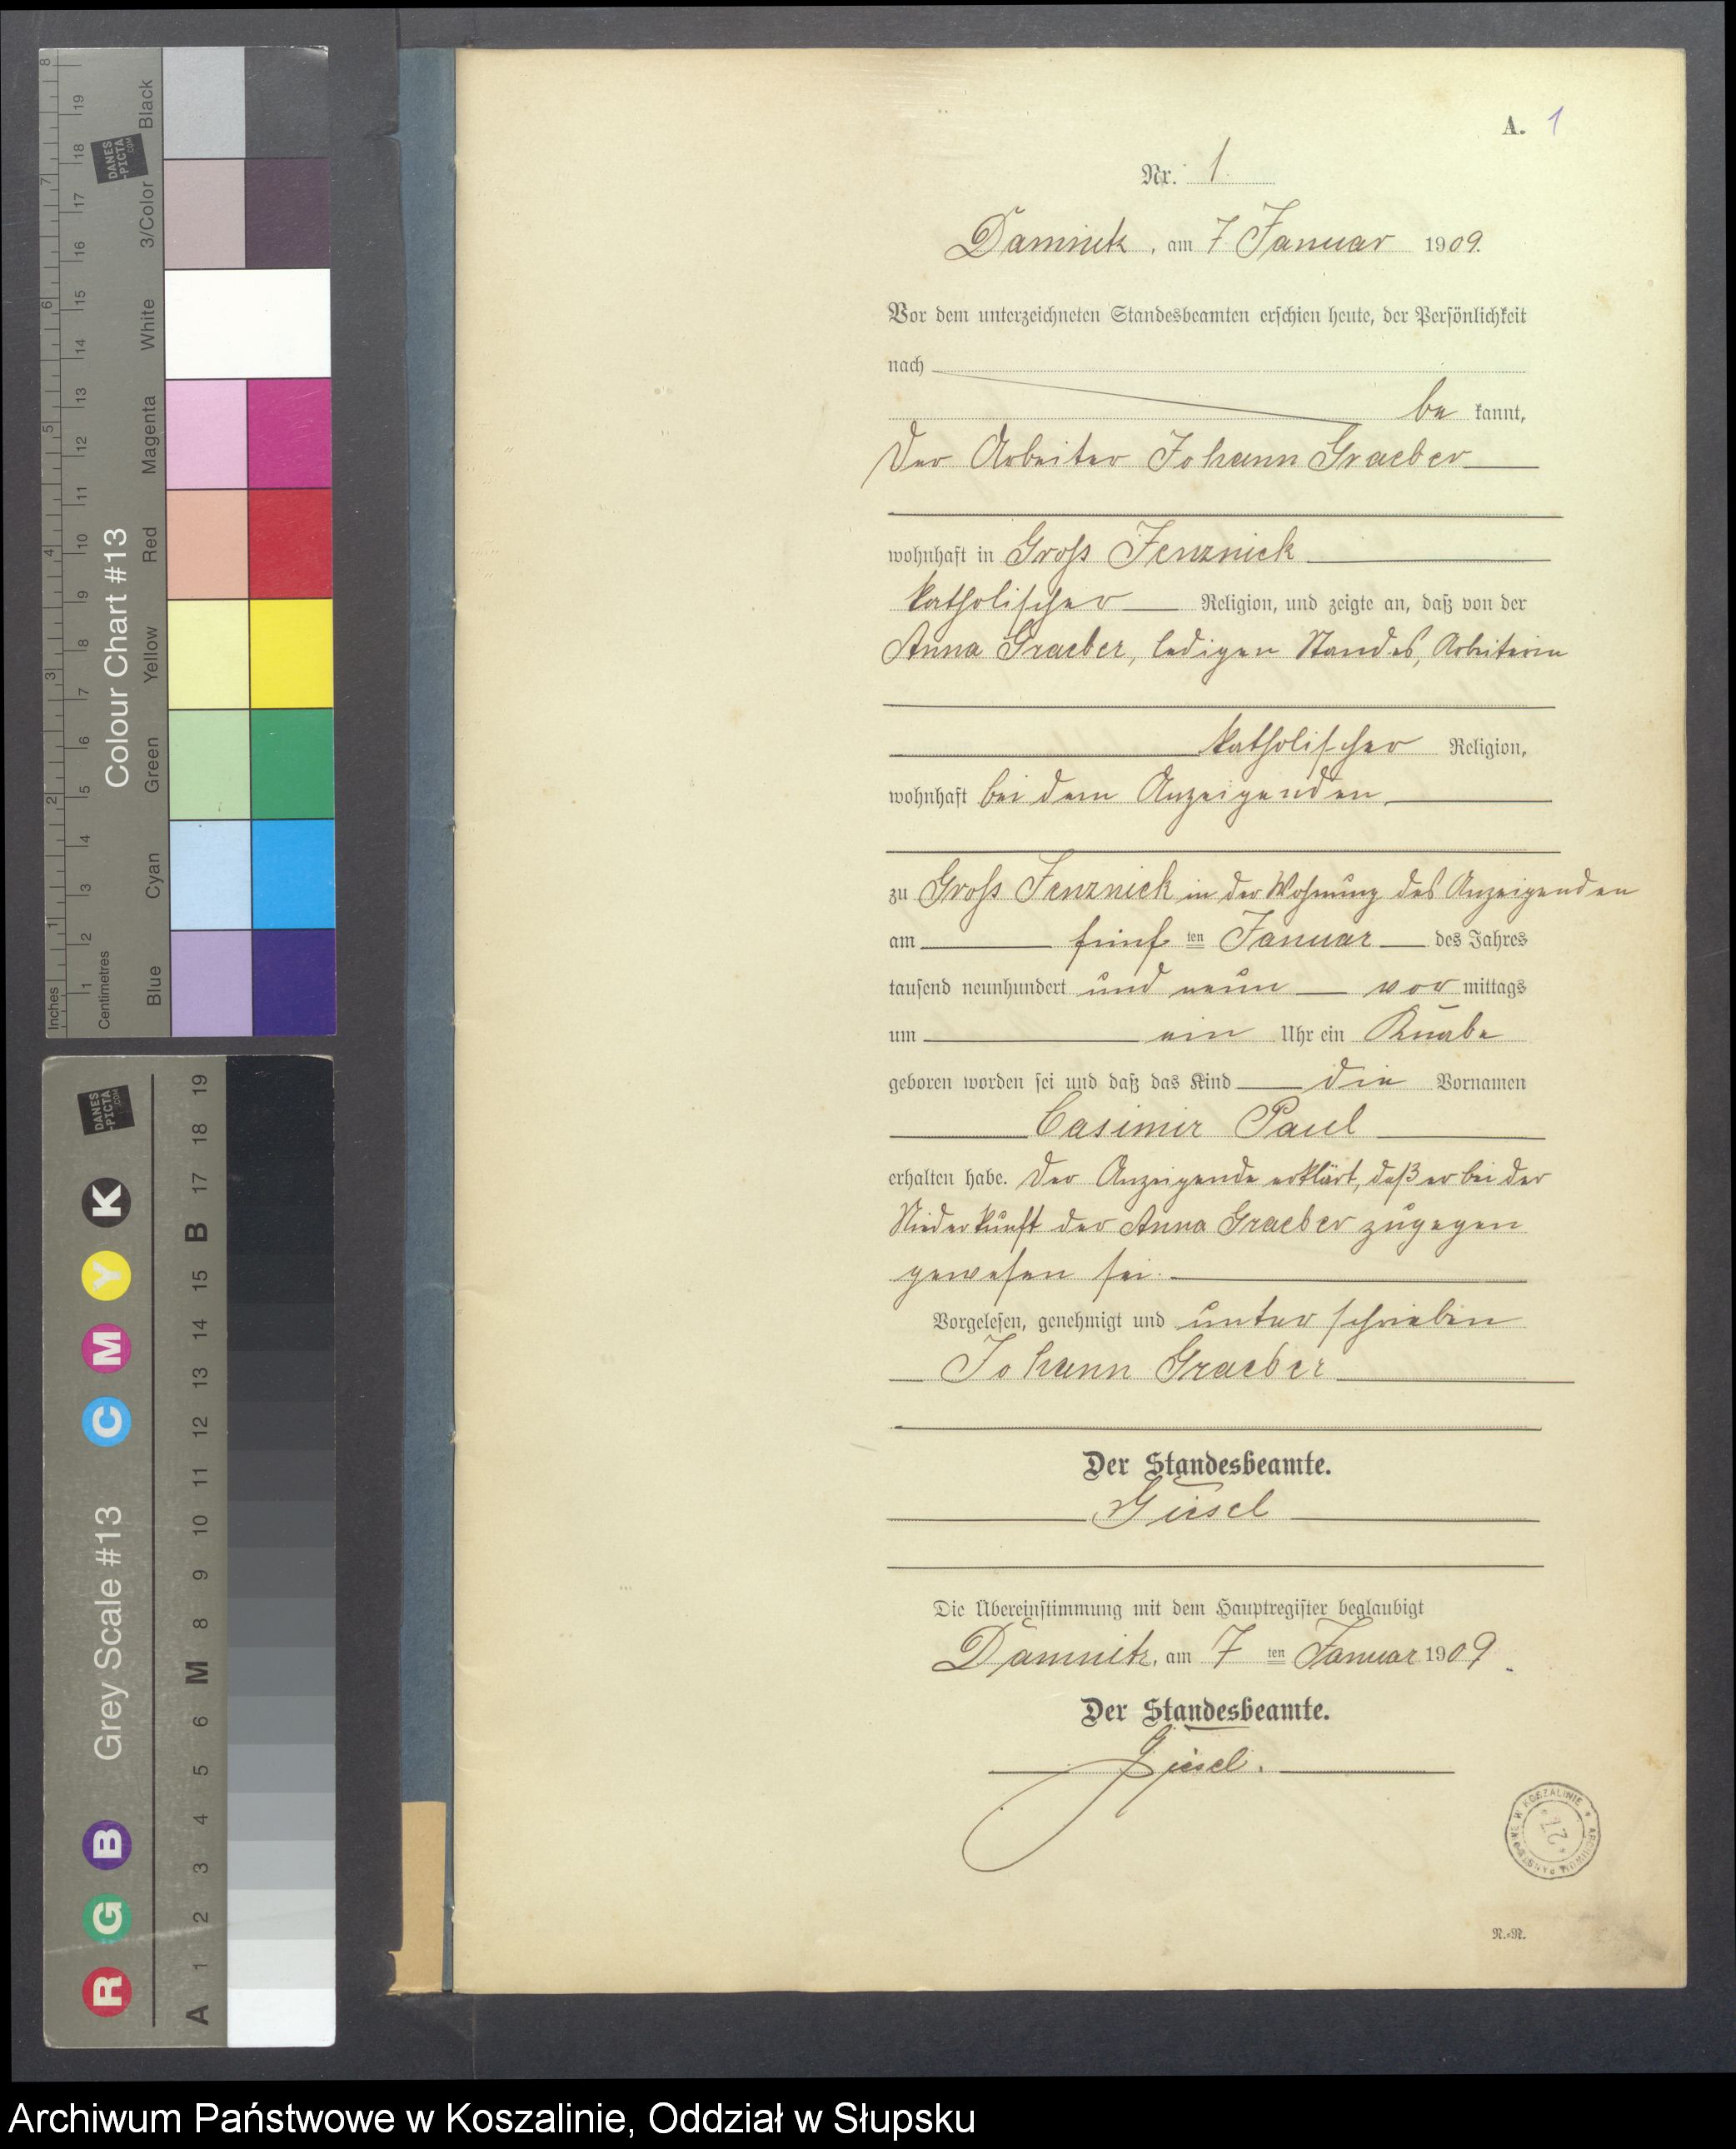 A. 1
Nr. 1
Damnick, am 7 Januar 1909.
Vor dem unterzeichneten Standesbeamten erschien heute, der Persönlichkeit
nach
be kannt,
der Arbeiter Johann Graeber
wohnhaft in Groß Jenznick
katholischer Religion, und zeigte an, daß von der
Anna Graeber, ledigen Standes, Arbeiterin
katholischer Religion,
wohnhaft bei dem Anzeigenden,
zu Groß Jenznick in der Wohnung des Anzeigenden
am fünf ten Januar des Jahres
tausend neunhundert und neun vor mittags
um ein Uhr ein Knabe
geboren worden sei und daß das Kind die Vornamen
Casimir Paul
erhalten habe. Der Anzeigende erklärt, daß er bei der
Niederkunft der Anna Graeber zugegen
gewesen sei.
Vorgelesen, genehmigt und unterschrieben
Johann Graeber
Der Standesbeamte.
Giesel
Die Übereinstimmung mit dem Hauptregister beglaubigt
Damnitz, am 7 ten Januar 1909.
Der Standesbeamte.
Giesel.
ARCHIWUM PAŃSTWOWE W KOSZALINIE
27
R.=R.
Colour Chart #13
Inches
Centimetres
Blue Cyan Green Yellow Red Magenta White 3/Color Black
DANES
-PICTA
.COM
Grey Scale #13
R G B C M Y K
DANES
-PICTA
.COM
A 1 2 3 4 5 6 M 8 9 10 11 12 13 14 15 B 17 18 19
Archiwum Państwowe w Koszalinie, Oddział w Słupsku